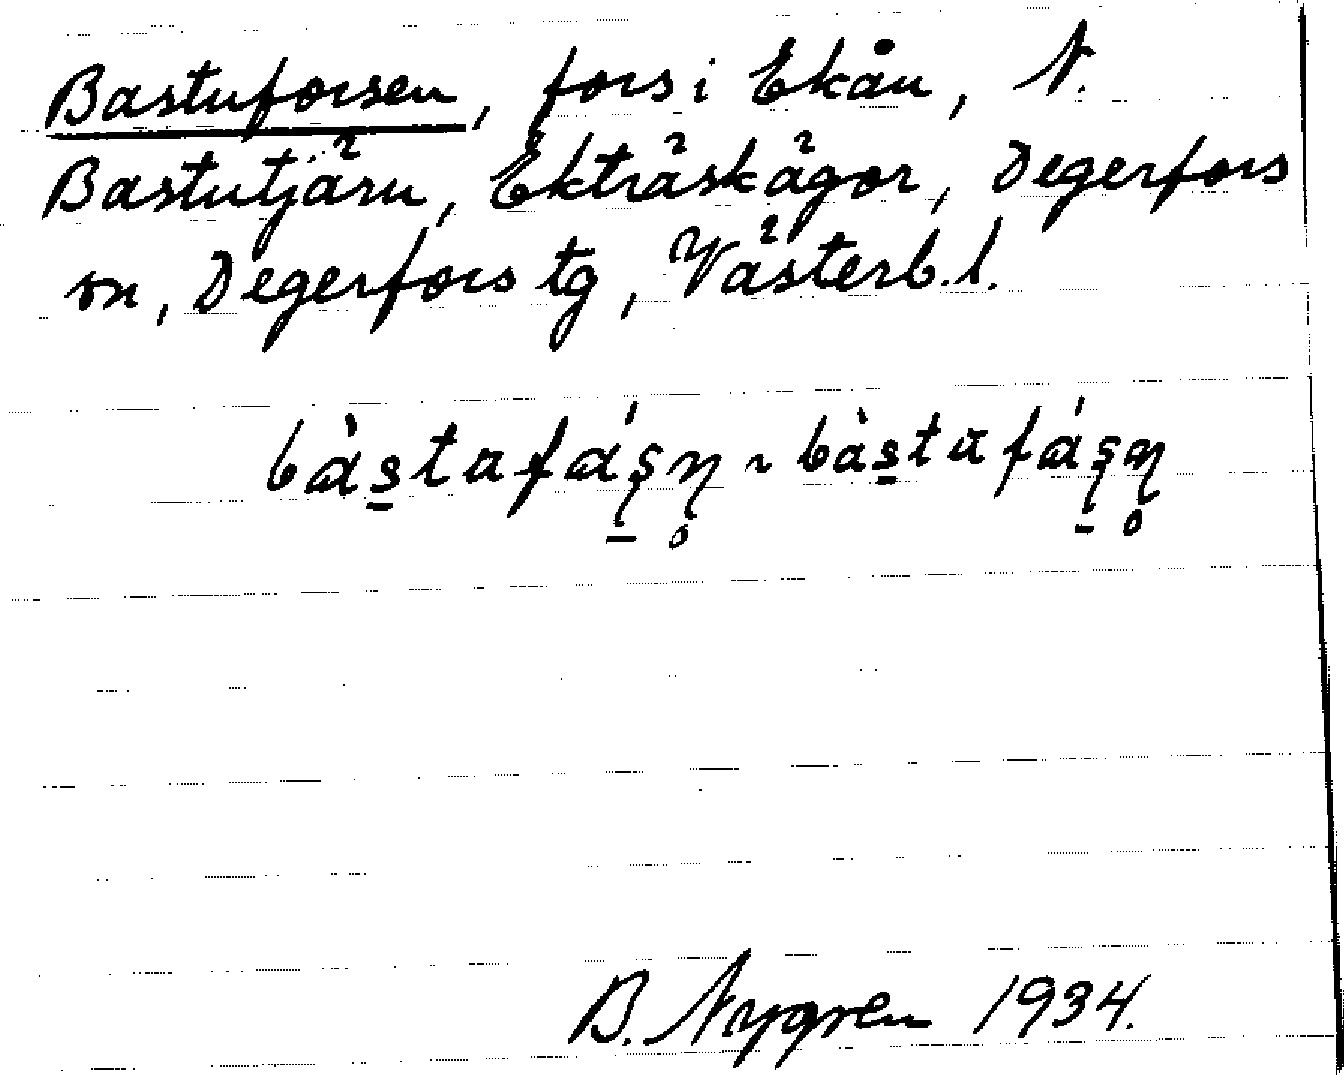 Bastuforsen, fors i Ekån, N.
Bastutjärn, Ekträskägor, Degerfors
sn, Degerfors tg, Västerb.l.
bàs̲tafás̲n̥ ~ bàs̲tafás̲n̥
B. Nygren 1934.